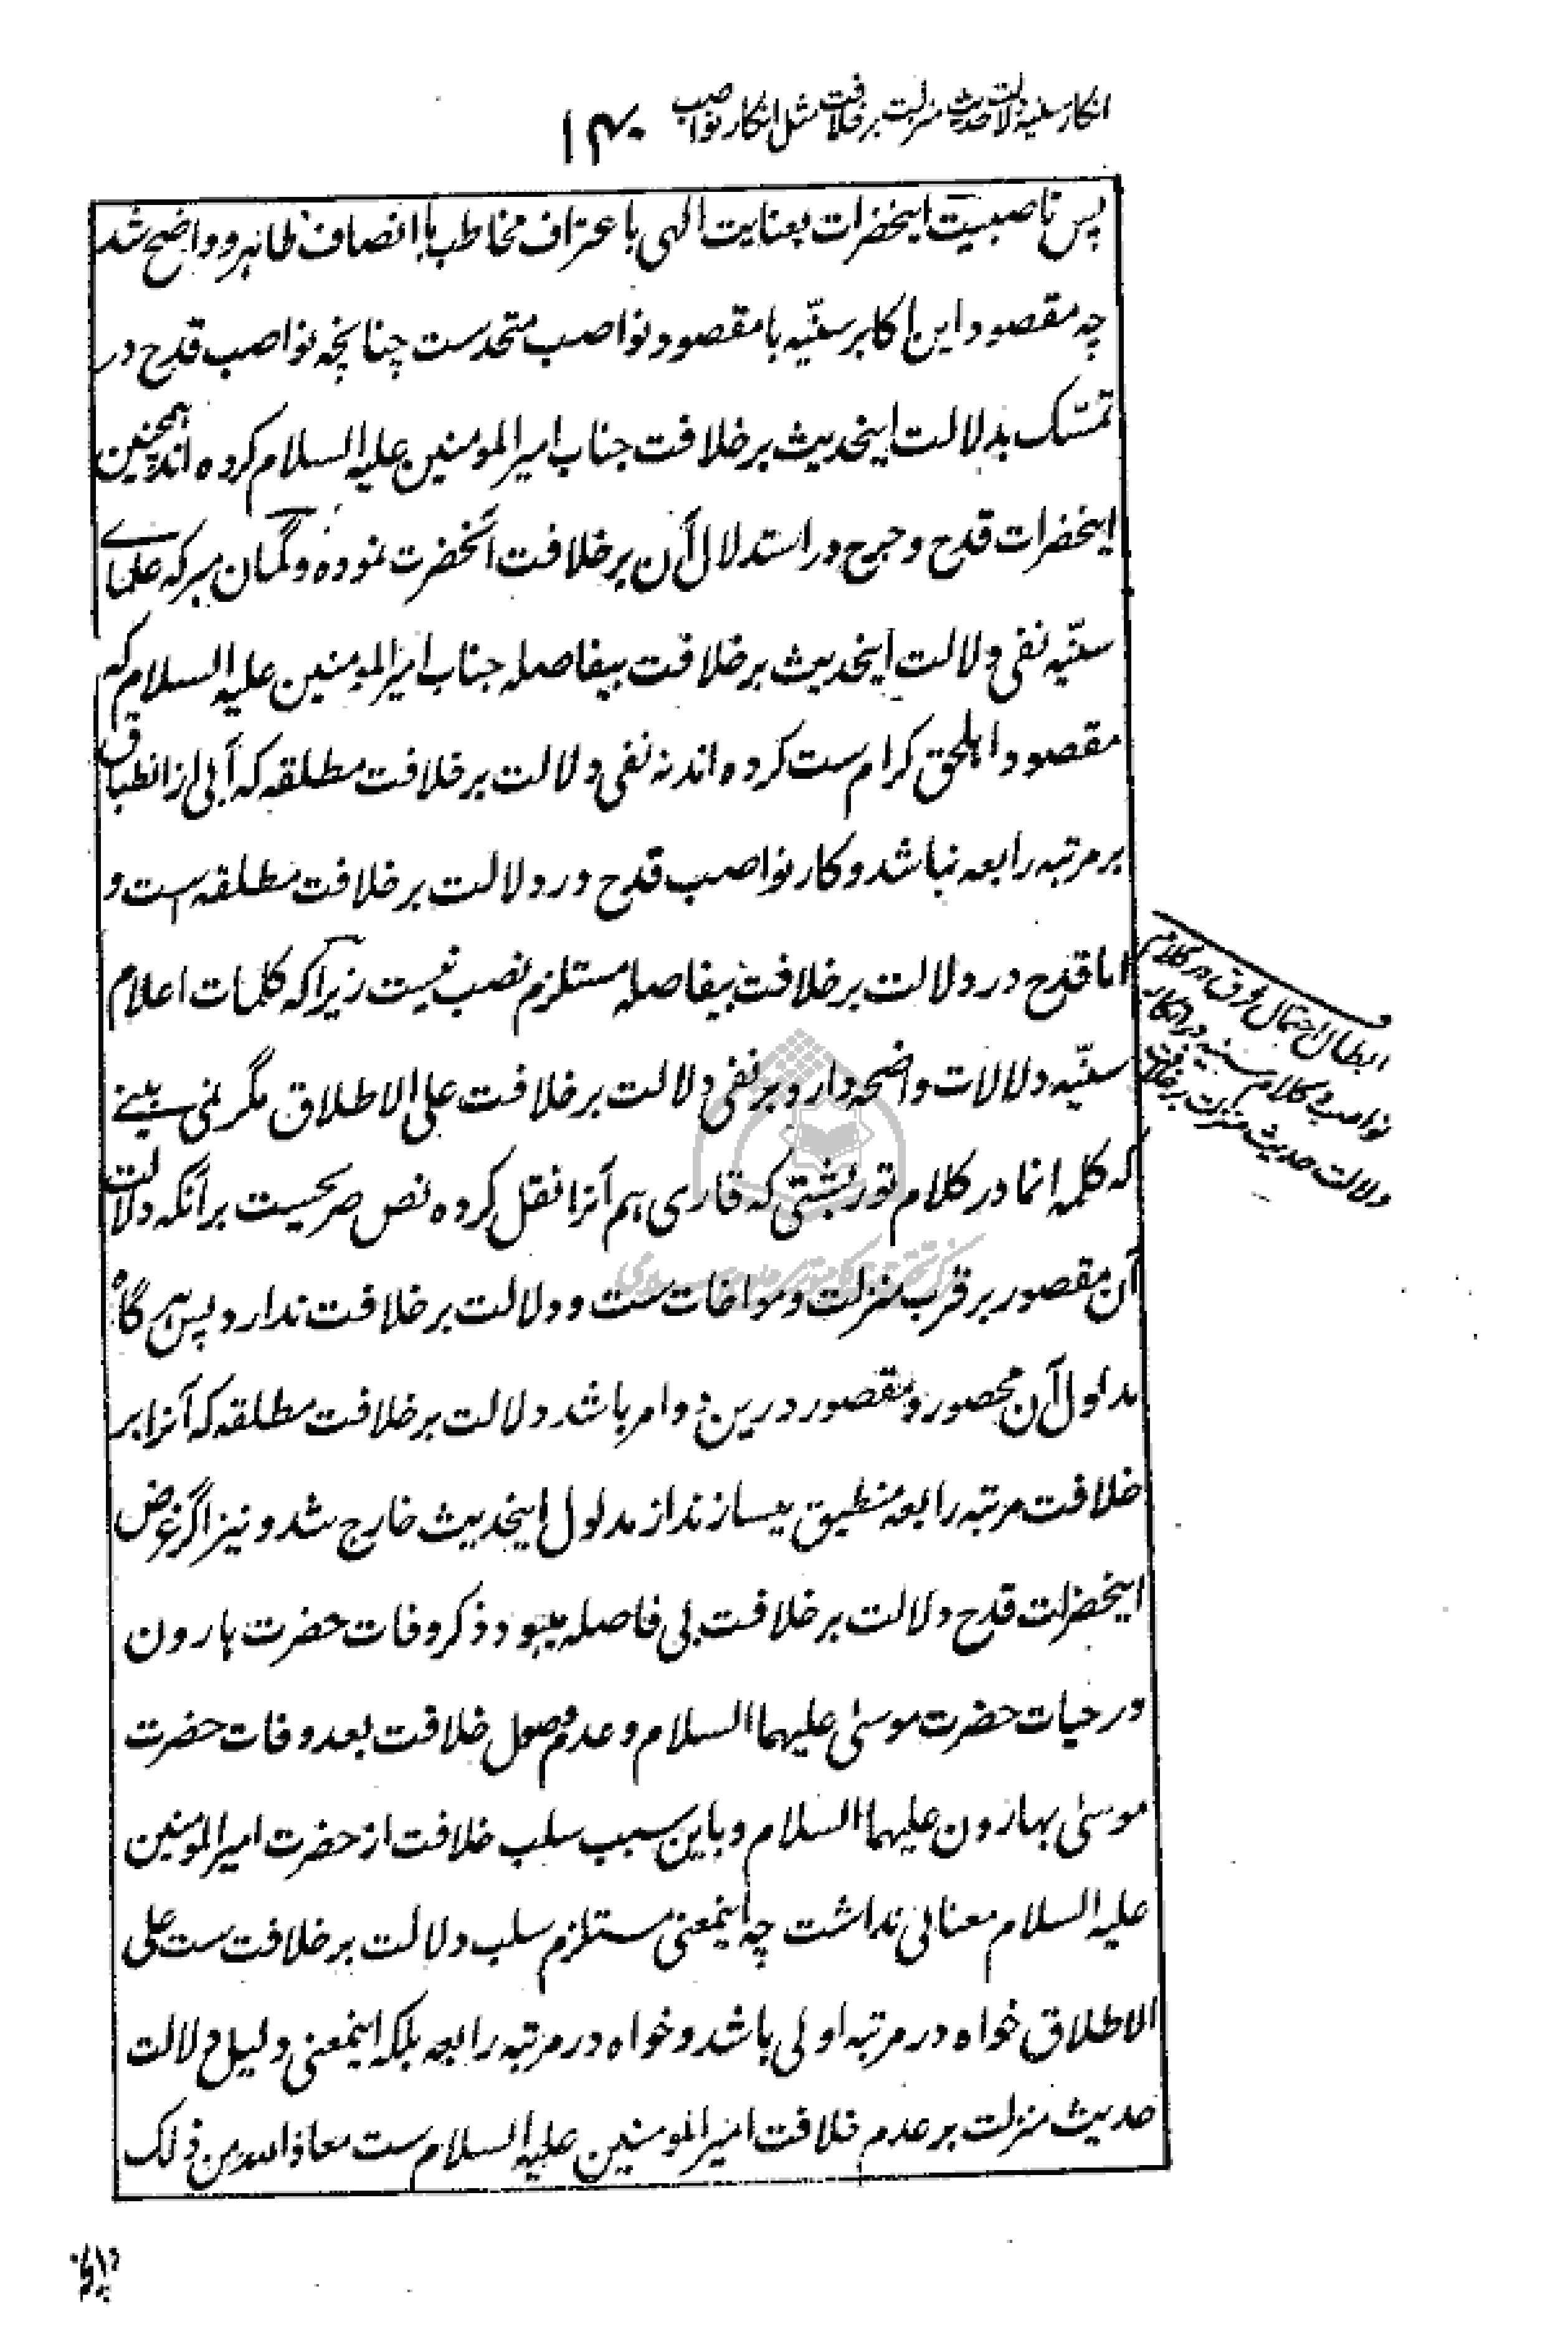 انکار سنیه دلالت حدیث منزلت بر خلافت مثل انکار نواصب
۱۴۰
پس ناصبیت اینحضرات بعنایت الهی باعتراف مخاطب باانصاف ظاهر و واضح شد
چه مقصود این اکابر سنّیه با مقصود نواصب متحدست چنانچه نواصب قدح در
تمسّک بدلالت اینحدیث بر خلافت جناب امیرالمومنین علیه السلام کرده اند همچنین
اینحضرات قدح و جرح در استدلال آن بر خلافت آنحضرت نموده و گمان مبر که علماے
سنّیه نفی دلالت اینحدیث بر خلافت بیفاصله جناب امیرالمومنین علیه السلام که
مقصود اهلحق کرام ست کرده اند نه نفی دلالت بر خلافت مطلقه که آبی از انطباق
بر مرتبه رابعه نباشد و کار نواصب قدح در دلالت بر خلافت مطلقه است و
اما قدح در دلالت بر خلافت بیفاصله مستلزم نصب نیست زیرا که کلمات اعلام
سنّیه دلالات واضحه دارد بر نفی دلالت بر خلافت علی الاطلاق مگر نمی بینے
که کلمه انما در کلام تورپشتی که قاری هم آنرا نقل کرده نص صریحیست بر آنکه دلالت
آن مقصور بر قرب منزلت و مواخات ست و دلالت بر خلافت ندارد پس هر گاه
مدلول آن محصور و مقصور درین دو امر باشد دلالت بر خلافت مطلقه که آنرا بر
خلافت مرتبه رابعه منطبق میسازند از مدلول اینحدیث خارج شد و نیز اگر غرض
اینحضرات قدح دلالت بر خلافت بی فاصله میبود ذکر وفات حضرت هارون
در حیات حضرت موسیٰ علیهما السلام و عدم وصول خلافت بعد وفات حضرت
موسیٰ بهارون علیهما السلام و باین سبب سلب خلافت از حضرت امیرالمومنین
علیه السلام معنائی نداشت چه اینمعنی مستلزم سلب دلالت بر خلافت ست علی
الاطلاق خواه در مرتبه اولی باشد و خواه در مرتبه رابعه بلکه اینمعنی دلیل دلالت
حدیث منزلت بر عدم خلافت امیرالمومنین علیه السلام ست معاذ الله من ذلک
ابطال احتمال فرق در کلام
نواصب و کلام سنیه در انکار
دلالت حدیث منزلت بر خلافت